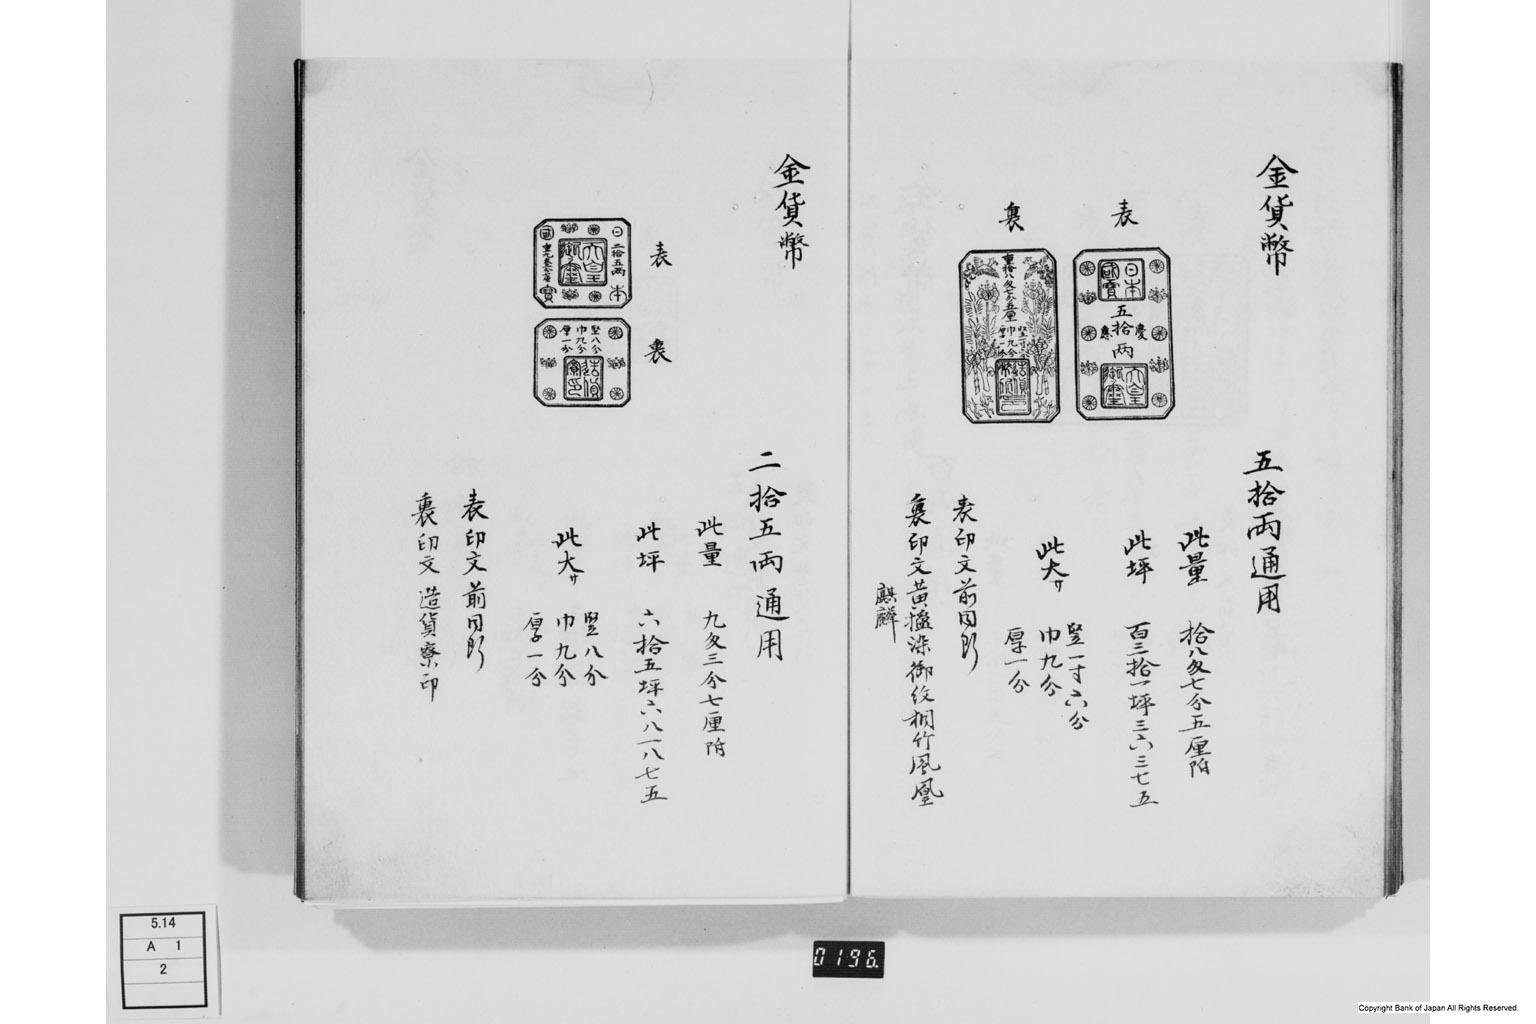 金貨幣
表
日本
國寶
五拾両
慶
應
大皇
御璽
裏
重拾八匁七分五厘
竪一寸六分
巾九分
厚一分
造貨
寮印
五拾両通用
此量 拾八匁七分五厘附
此坪 百三拾一坪三六三七五
此大サ 竪一寸六分
巾九分
厚一分
表印文前同断
裏印文黄櫨染御紋桐竹鳳凰
麒麟
金貨幣
表
日本
國寶
二拾五両
大皇
御璽
裏
竪八分
巾九分
厚一分
造貨
寮印
二拾五両通用
此量 九匁三分七厘附
此坪 六拾五坪六八一八七五
此大サ 竪八分
巾九分
厚一分
表印文前同断
裏印文 造貨寮印
5.14
A 1
2
0196.
Copyright Bank of Japan All Rights Reserved.